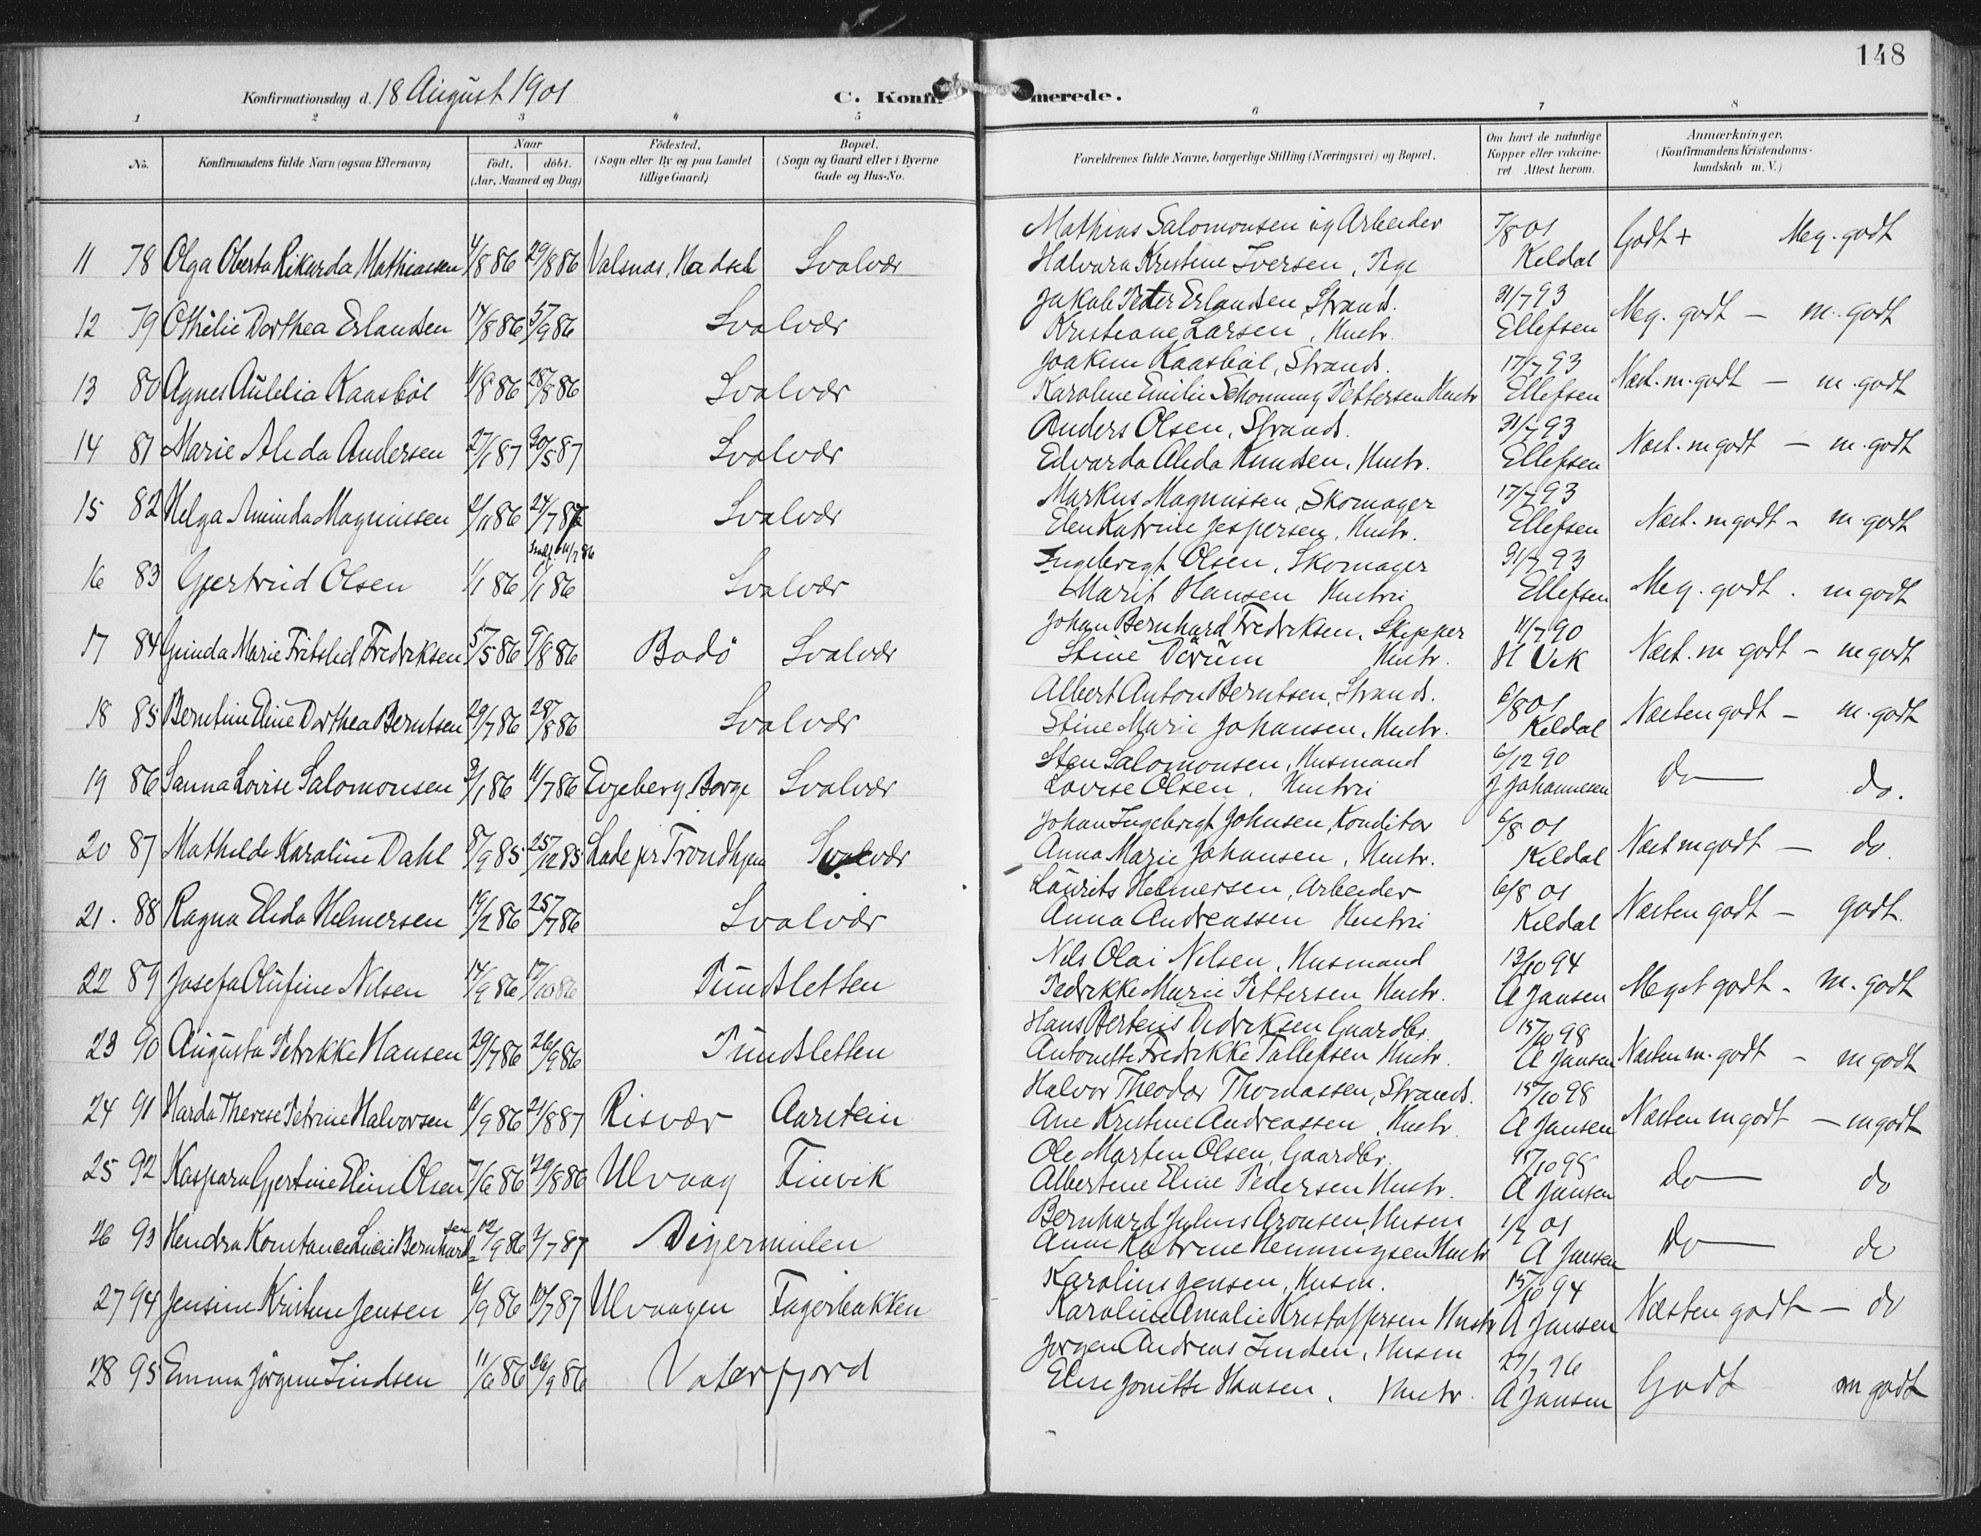 148
Konfirmationsdag d. 18 August 1901
C. Konfir merede.
1 2 3 4 5 6 7 8
No. Konfirmandens fulde Navn (ogsaa Efternavn) Naar født. døbt. (Aar, Maaned og Dag) Fødested. (Sogn eller By og paa Landet tillige Gaard) Bopæl. (Sogn og Gaard eller i Byerne Gade og Hus-No. Forældrenes fulde Navne, borgerlige Stilling (Næringsvei) og Bopæl. Om havt de naturlige Kopper eller vakcineret Attest herom. Anmærkninger. (Konfirmandens Kristendomskundskab m. V.)
11 78 Olga Oberta Rikarda Mathiassen 4/8 86 29/8 86 Valsnæs, Hadsel Svolvær Mathias Salomonsen og Arbeider 7/8 01 Godt + Meg. godt
Halvara Kristine Iversen, Pige Keldal
12 79 Othelie Dorthea Erlandsen 14/8 86 5/9 86 Svolvær Jakob Peter Erlandsen, Strands. 31/7 93 Meg. godt — m. godt
Kristiane Larsen, Hustr. Ellefsen
13 80 Agnes Aulelia Kaasbøl 11/8 86 28/8 86 Svolvær Joakim Kaasbøl, Strands. 17/7 93 Næst. m. godt — m. godt
Karoline Emilie Schonning Pettersen Hustr Ellefsen
14 81 Marie Alida Andersen 27/1 87 30/5 87 Svolvær Anders Olsen, Strands. 31/7 93 Næst. m godt — m. godt
Edvarda Alida Knudsen, Hustr. Ellefsen
15 82 Helga Aminda Magnussen 2/11 86 24/7 87 Svolvær Markus Magnussen, Skomager 17/7 93 Næst. m godt - m. godt
Elen Katrine Jespersen, Hustr. Ellefsen
16 83 Gjertrud Olsen 1/1 86 1/1 86 Svolvær Ingebrigt Olsen, Skomager 31/7 93 Meg. godt . m godt
Marit Hansen Hustru Ellefsen
17 84 Gunda Marie Fritsled Fredriksen 5/5 86 9/8 86 Bodø Svolvær Johan Bernhard Fredriksen, Skipper 11/7 90 Næst. m godt - m godt
Stine Hustr. H
18 85 Berntine Eline Dorthea Berntsen 29/7 86 28/8 86 Svolvær Albert Anton Berntsen, Strands. 6/8 01 Næsten godt — m. godt
Stine Marie Johansen, Hustr. Keldal
19 86 Sanna Lovise Salomonsen 3/1 86 11/7 86 Evjeberg, Borge Svolvær Sten Salomonsen, Husmand 6/12 90 Do — do.
Lovise Olsen, Hustru J Johannesen
20 87 Mathilde Karoline Dahl 8/9 85 25/12 85 Lade pr Trondhjem Svolvær Johan Ingebrigt Johnsen, Konditor 6/8 01 Næst m godt — do.
Anna Marie Johansen, Hustr. Keldal
21. 88 Ragna Elida Helmersen 19/2 86 25/7 86 Svolvær Laurits Helmersen, Arbeider 6/8 01 Næsten godt — godt.
Anna Andreassen Hustru Keldal
22 89 Josefa Olufine Nilsen 14/9 86 17/10 86 Pundsletten Nils Olai Nilsen, Husmand 13/10 94 Meget godt - m. godt
Pedrikke Marie Pettersen Hustr. A Jansen
23 90 Augusta Petrikke Hansen 29/7 86 26/9 86 Pundsletten Hans Bertens Didriksen Gaardbr. 15/10 98 Næsten m. godt - m godt
Antonette Fredrikke Tallefsen Hustr. A Jansen
24 91 Harda Therese Petrine Halvorsen 9/9 86 21/8 87 Risvær Aarstein Halvor Theodor Thomassen, Strands. 15/10 98 Næsten m godt — m godt
Ane Kristine Andreassen, Hustr. A Jansen
25 92 Kaspara Gjertine Eline Olsen 7/6 86 29/8 86 Ulvaag Finvik Ole Marten Olsen, Gaardbr. 15/10 98 Do — do
Albertine Eline Pedersen Hustr. A Jansen
26 93 Hendra Konstance Lucie Bernhardsen 12/9 86 2/7 87 Digermulen Bernhard Julius Aronsen, Husm 1/7 01 Do — do
Anne Katrine Henningsen Hustr A Jansen
27 94 Jensine Kristine Jensen 9/9 86 10/7 87 Ulvaagen Fagerbakken Karolius Jensen, Husm. 15/10 94 Næsten godt — do
Karoline Amalie Kristoffersen Hustr A Jansen
28 95 Emma Jørgine Lindsen 11/6 86 26/9 86 Vaterfjord Jørgen Andreas Linden, Husm 27/7 96 Godt m godt
Elise Jonette Hansen, Hustr. A Jansen